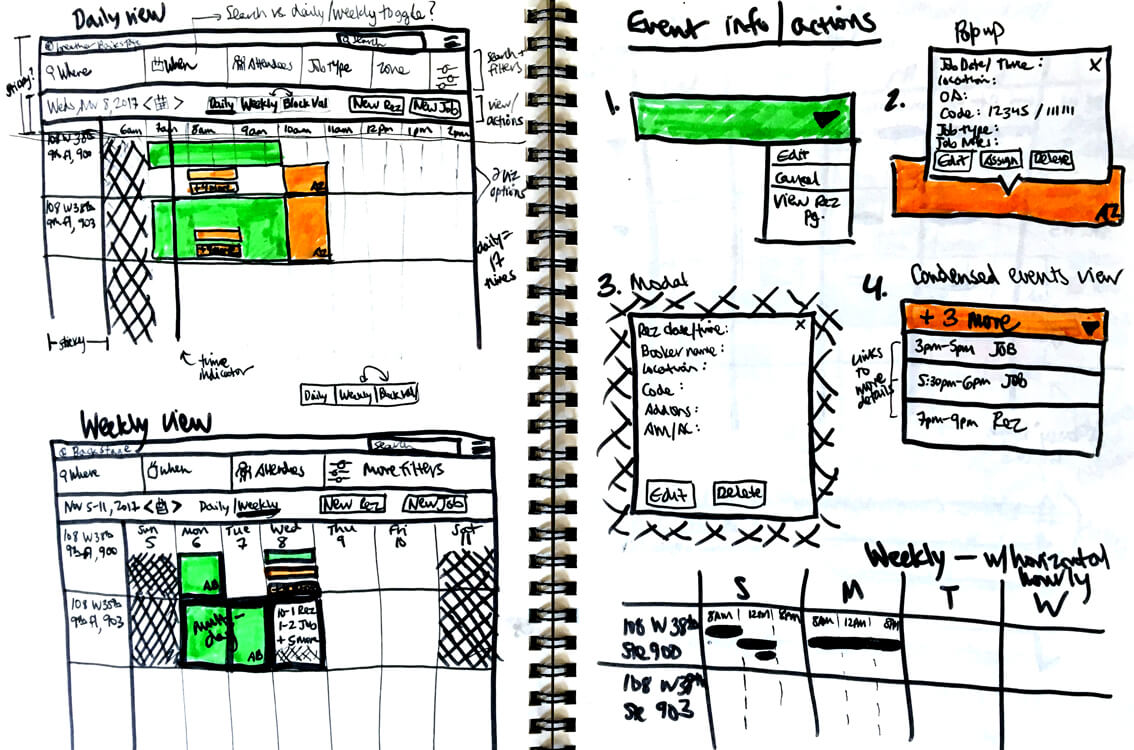 Daily view
Search vs daily/weekly toggle?
Search
Where
When
Attendees
Job Type
Zone
search + filters
sticky?
Wed, Nov 8, 2017 < >
Daily Weekly Block Val
New Rez
New Job
view/actions
6am 7am 8am 9am 10am 11am 12pm 1pm 2pm
108 W 38th
9th Fl, 900
+4 more
AZ
2 viz options
108 W 38th
9th Fl, 903
AZ
daily =
sticky
time indicator
Daily Weekly Block Val
Weekly view
Backstage
Search
Where
When
Attendees
More Filters
Nov 5-11, 2017 < >
Daily/Weekly
New Rez
New Job
Sun Mon Tue Wed Thu Fri Sat
5 6 7 8 9 10 11
108 W 38th
9th Fl, 900
AB
108 W 38th
9th Fl, 903
Multi-day
AB
10-1 Rez
1-2 Job
+5 more
Event info/actions
1.
Edit
Cancel
View Rez
Pg.
2.
Popup
Job Date/Time:
X
Location:
OA:
Code: 12345 / 11111
Job type:
Job Notes:
Edit Assign Delete
AZ
3. Modal
Rez date/time:
X
Booker name:
Location:
Code:
Addons:
AM/AC:
Edit
Delete
4.
Condensed events view
+ 3 more
3pm-5pm JOB
5:30pm-6pm JOB
7pm-9pm Rez
Links to more details
Weekly - w/horizontal hourly
S M T W
8AM | 12PM | 8PM
8AM | 12PM | 8PM
108 W 38th
Ste 900
108 W 38th
Ste 903